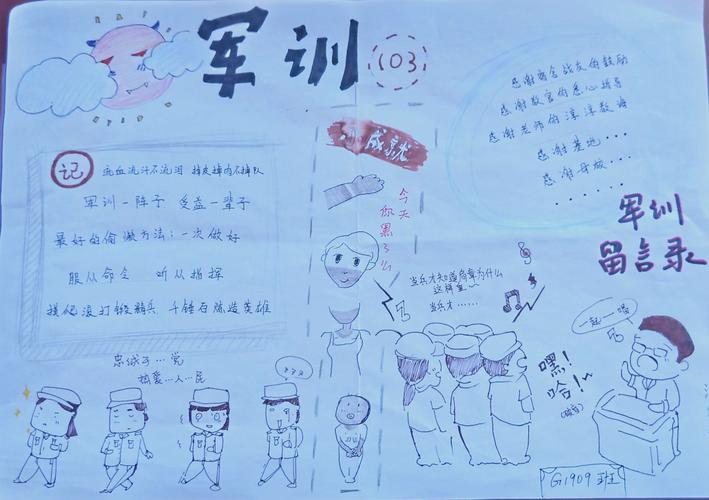 军训
103
感谢宿舍战友的鼓励
感谢教官的悉心指导
感谢老师的淳淳教诲
感谢基地....
感谢母校....
......
成就
记
流血流汗不流泪 掉皮掉肉不掉队
军训一阵子 受益一辈子
最好的偷懒方法：一次做好
服从命令 听从指挥
摸爬滚打锻精兵 千锤百炼造英雄
今天
你黑了么
军训
留言录
当兵才知道肩章为什么
这样重~
当兵才......
一起一唱
嘿！
哈！
忠诚于...党
热爱...人民
G1909班